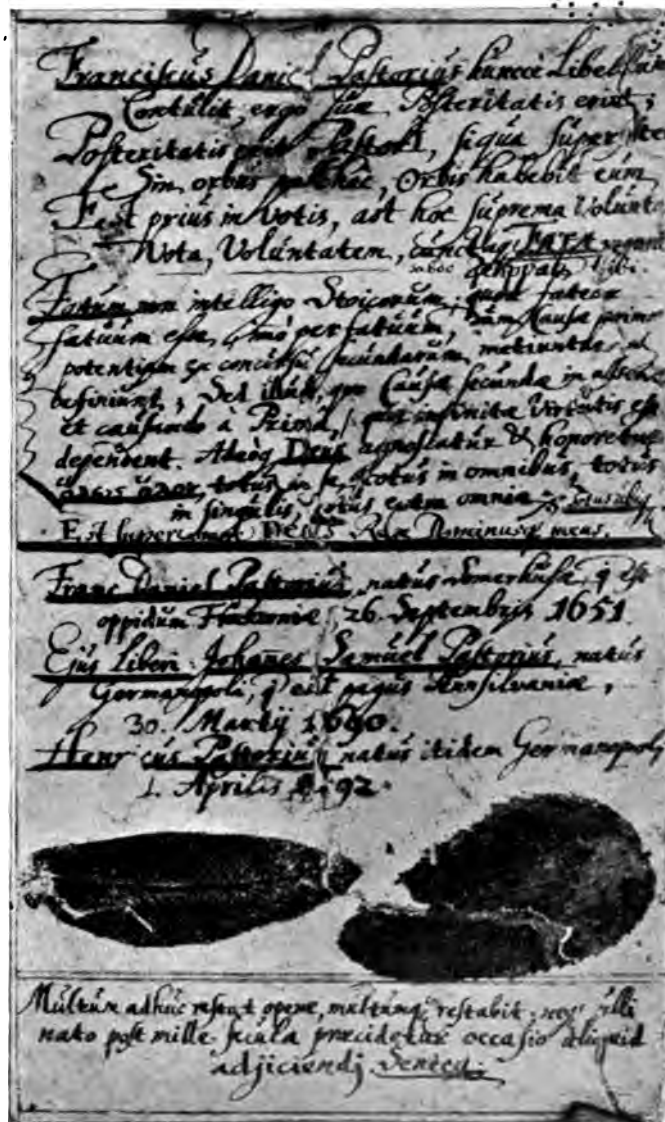 Franciscus Daniel Pastorius huncce Libellum
Contulit, ergo suæ Posteritatis erit;
Posteritatis erit PastorI, siqua super
Sin, orbus hac, Orbis habebit eum,
Est prius in Votis, ast hoc suprema
Nota, Voluntatem, cunctaq; FATA
Fatum non intelligo Stoicorum, quod fateor
fatuum esse, imò perfatuum, cùm Causæ primæ
potentiam ex concursu secundarum metiuntur
definiunt; Sed illud, quo Causæ secundæ in
et causando à Primâ, quæ infinitæ Virtutis est
dependent. Adeòq; Deus agnoscatur & honoretur
totus in se, totus in omnibus, totus
in singulis, totus extra omnia
Est DEUS Dominusq; meus.
Franc. Daniel Pastorius, natus Somerhusæ, q. est
oppidum Franconiæ, 26. Septembris 1651.
Ejus Liberi: Johañes Samuel Pastorius, natus
Germanopoli, q. est pagus Pennsilvaniæ,
30. Martij 1690.
Henricus Pastorius natus itidem Germanopoli
1. Aprilis 1692.
Multum adhuc restat operæ, multumq; restabit, nec ulli
nato post mille sæcula præcidetur occasio aliquid
adjiciendj. Seneca.